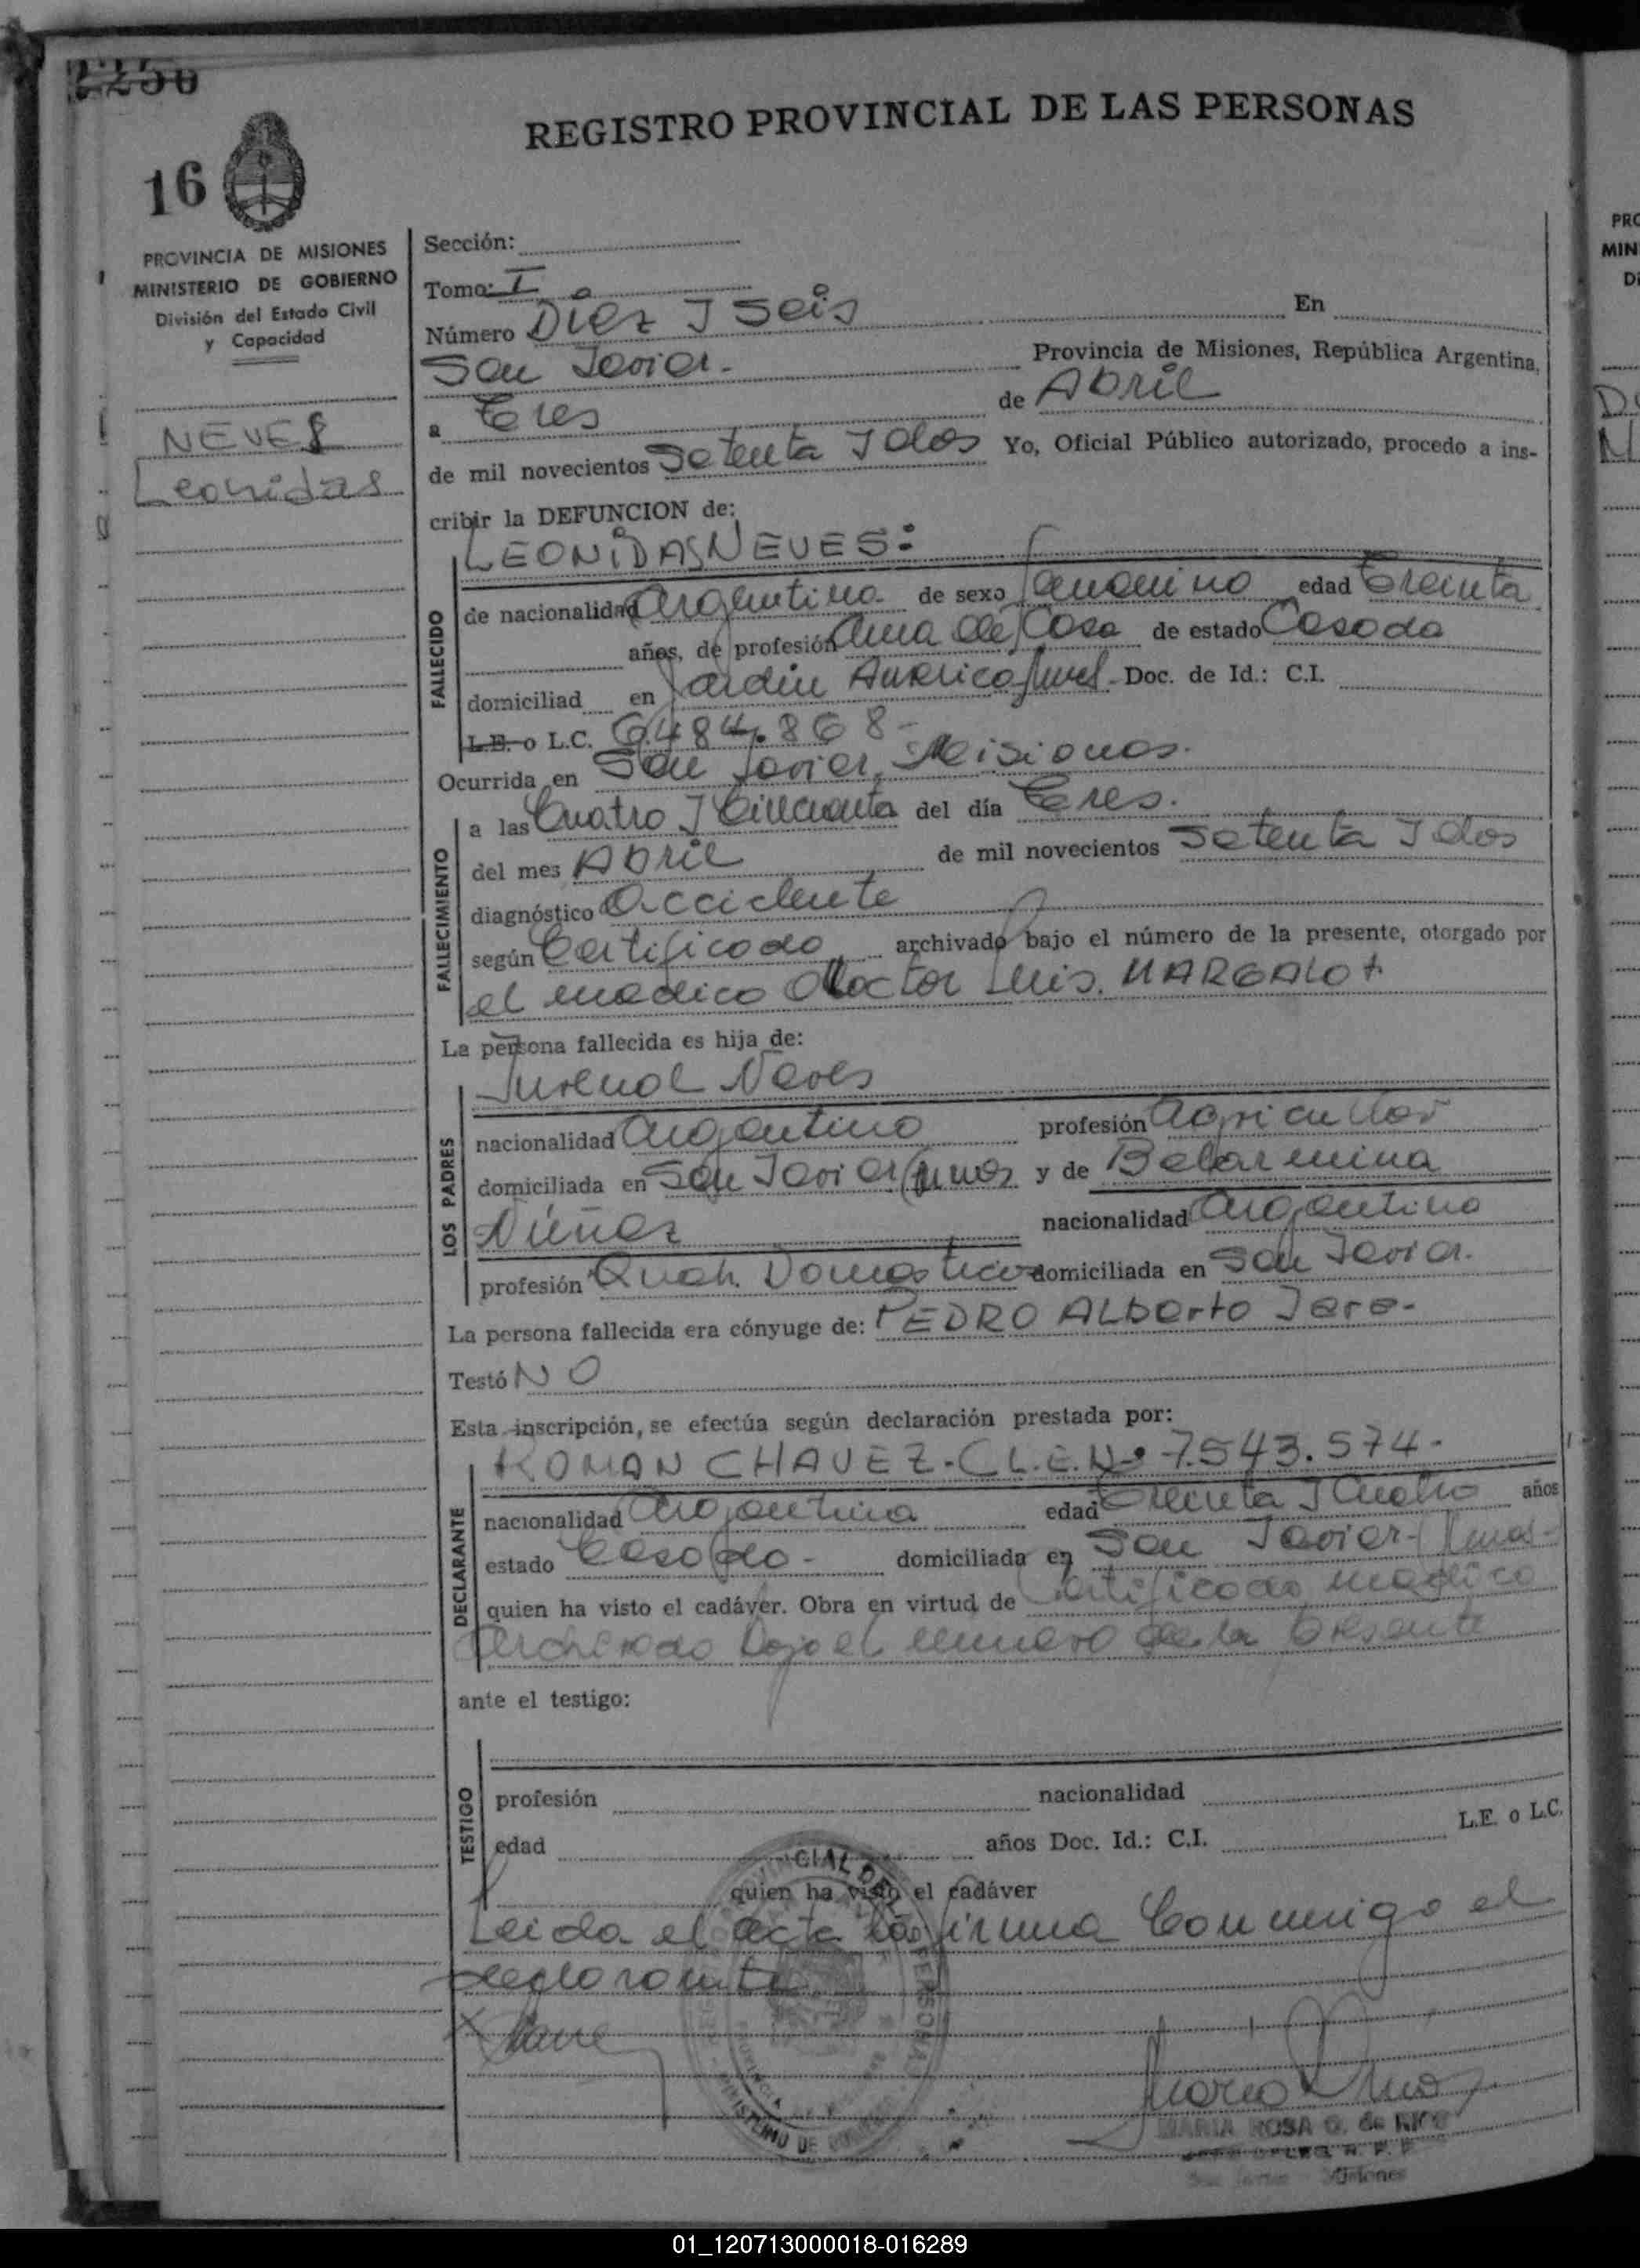 2250
REGISTRO PROVINCIAL DE LAS PERSONAS
16
PROVINCIA DE MISIONES
MINISTERIO DE GOBIERNO
División del Estado Civil
y Capacidad
NEVES
Leonidas
Sección:
Tomo: I
Número Diéz y seis En
San Javier. Provincia de Misiones, República Argentina,
a tres de Abril
de mil novecientos setenta y dos Yo, Oficial Público autorizado, procedo a ins-
cribir la DEFUNCION de:
LEONIDAS NEVES:
FALLECIDO
de nacionalidad Argentina de sexo femenino edad treinta
años, de profesión Ama de Casa de estado Casada
domiciliad en Jardin America Doc. de Id.: C.I.
L.E. o L.C. 6.484.868-
Ocurrida en San Javier, Misiones.
FALLECIMIENTO
a las Cuatro y Cincuenta del día tres.
del mes Abril de mil novecientos setenta y dos
diagnóstico Accidente
según Certificado archivado bajo el número de la presente, otorgado por
el medico Doctor Luis. MARGALOT
La persona fallecida es hija de:
LOS PADRES
Juvenal Neves
nacionalidad argentino profesión agricultor
domiciliada en San Javier y de Belarmina
Núñez nacionalidad argentina
profesión Queh. Domesticos domiciliada en San Javier.
La persona fallecida era cónyuge de: PEDRO ALberto Jara-
Testó NO
Esta inscripción, se efectúa según declaración prestada por:
DECLARANTE
ROMAN CHAVEZ- 7.543.574-
nacionalidad argentina edad treinta y Cuatro años
estado Casado- domiciliada en San Javier-
quien ha visto el cadáver. Obra en virtud de Certificado medico
archivado bajo el numero de la presente
ante el testigo:
TESTIGO
profesión nacionalidad
edad años Doc. Id.: C.I. L.E. o L.C.
quien ha visto el cadáver
Leida el acta la firma Conmigo el
declarante
MARIA ROSA G. de
Misiones
PRO
MIN
01_120713000018-016289